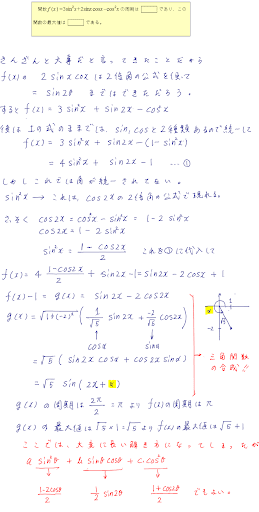 関数 f(x)=3sin²x+2sinx cosx−cos²x の周期は□であり、この
関数の最大値は□である。
さんざんと大事だと言ってきたことだから
f(x)の 2sinx cosxは2倍角の公式を使って
= sin2x まではできただろう。
すると f(x)= 3sin²x + sin2x − cos²x
後は上の式のままでは、sin, cosと2種類あるので統一して
f(x)= 3sin²x + sin2x − (1−sin²x)
= 4sin²x + sin2x − 1 … ①
しかしこれでは角が統一されてない。
sin²x → これは、cos2xの2倍角の公式で現れる。
cos2x = cos²x − sin²x = 1−2sin²x
cos2x = 1−2sin²x
sin²x = 1−cos2x/2 これを①に代入して
f(x)= 4 1−cos2x/2 + sin2x−1 = sin2x−2cos2x + 1
f(x)−1 = g(x) = sin2x − 2cos2x
g(x) = √1²+(−2)² (1/√5 sin2x + −2/√5 cos2x)
cosα sinα
= √5 ( sin2x cosα + cos2x sinα)
三角関数
の合成
= √5 sin (2x+α)
α
−2
g(x) の周期は 2π/2 = π より f(x)の周期は π
g(x) の最大値は √5×1=√5 より f(x)の最大値は √5+1
ここでは、大変に長い解き方になってしまったが
a sin²θ + b sinθcosθ + c cos²θ
1−cos2θ/2 1/2 sin2θ 1+cos2θ/2 でもよい。